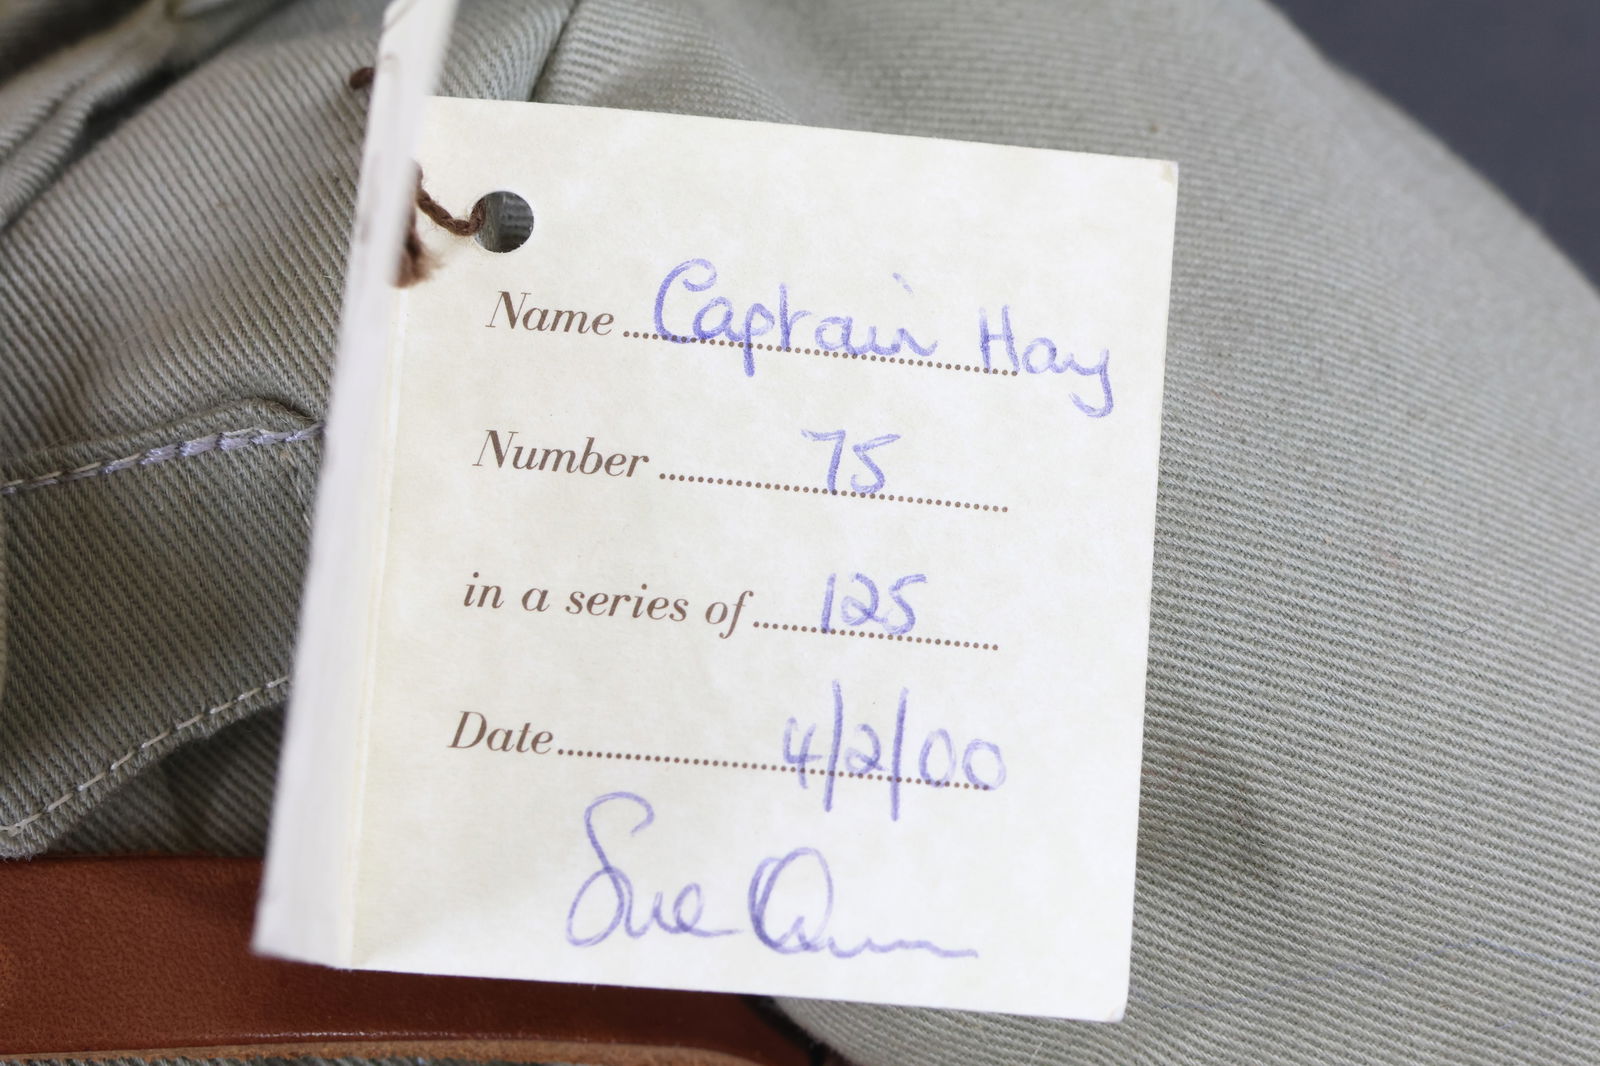 Name Captain Hay
Number 75
in a series of 125
Date 4/2/00
Sue Quinn